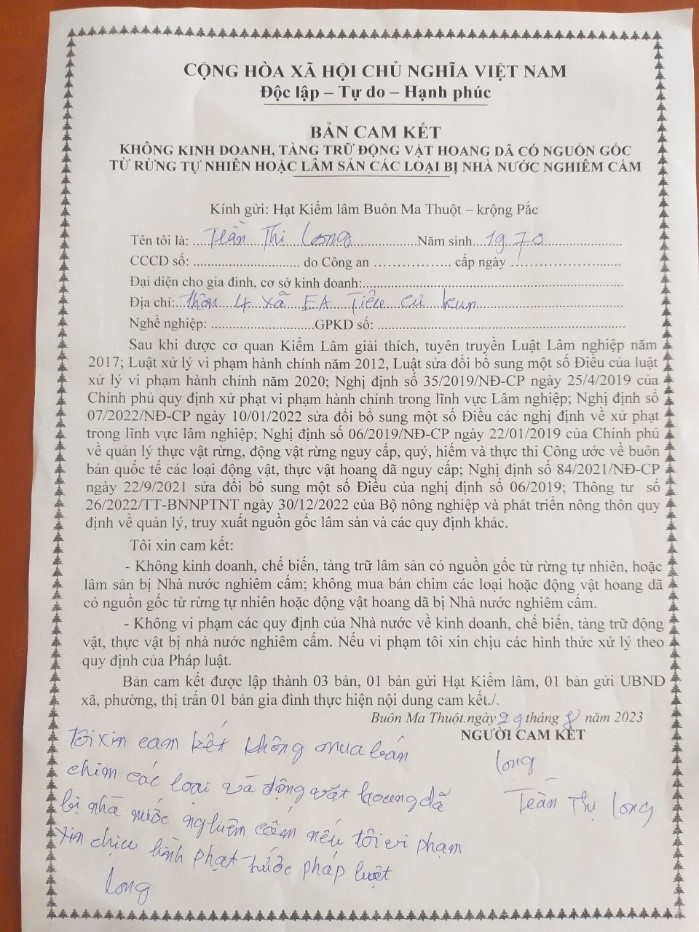 CỘNG HÒA XÃ HỘI CHỦ NGHĨA VIỆT NAM
Độc lập – Tự do – Hạnh phúc
BẢN CAM KẾT
KHÔNG KINH DOANH, TÀNG TRỮ ĐỘNG VẬT HOANG DÃ CÓ NGUỒN GỐC
TỪ RỪNG TỰ NHIÊN HOẶC LÂM SẢN CÁC LOẠI BỊ NHÀ NƯỚC NGHIÊM CẤM
Kính gửi: Hạt Kiểm lâm Buôn Ma Thuột – krông Pắc
Tên tôi là: Trần Thị Long Năm sinh 1970
CCCD số: do Công an cấp ngày
Đại diện cho gia đình, cơ sở kinh doanh:
Địa chỉ: thôn 4 xã EA Tiêu Cư kuin
Nghề nghiệp: GPKD số:
Sau khi được cơ quan Kiểm Lâm giải thích, tuyên truyền Luật Lâm nghiệp năm
2017; Luật xử lý vi phạm hành chính năm 2012, Luật sửa đổi bổ sung một số Điều của luật
xử lý vi phạm hành chính năm 2020; Nghị định số 35/2019/NĐ-CP ngày 25/4/2019 của
Chính phủ quy định xử phạt vi phạm hành chính trong lĩnh vực Lâm nghiệp; Nghị định số
07/2022/NĐ-CP ngày 10/01/2022 sửa đổi bổ sung một số Điều các nghị định về xử phạt
trong lĩnh vực lâm nghiệp; Nghị định số 06/2019/NĐ-CP ngày 22/01/2019 của Chính phủ
về quản lý thực vật rừng, động vật rừng nguy cấp, quý, hiếm và thực thi Công ước về buôn
bán quốc tế các loại động vật, thực vật hoang dã nguy cấp; Nghị định số 84/2021/NĐ-CP
ngày 22/9/2021 sửa đổi bổ sung một số Điều của nghị định số 06/2019; Thông tư số
26/2022/TT-BNNPTNT ngày 30/12/2022 của Bộ nông nghiệp và phát triển nông thôn quy
định về quản lý, truy xuất nguồn gốc lâm sản và các quy định khác.
Tôi xin cam kết:
- Không kinh doanh, chế biến, tàng trữ lâm sản có nguồn gốc từ rừng tự nhiên, hoặc
lâm sản bị Nhà nước nghiêm cấm; không mua bán chim các loại hoặc động vật hoang dã
có nguồn gốc từ rừng tự nhiên hoặc động vật hoang dã bị Nhà nước nghiêm cấm.
- Không vi phạm các quy định của Nhà nước về kinh doanh, chế biến, tàng trữ động
vật, thực vật bị nhà nước nghiêm cấm. Nếu vi phạm tôi xin chịu các hình thức xử lý theo
quy định của Pháp luật.
Bản cam kết được lập thành 03 bản, 01 bản gửi Hạt Kiểm lâm, 01 bản gửi UBND
xã, phường, thị trấn 01 bản gia đình thực hiện nội dung cam kết./.
Buôn Ma Thuột.ngày 29 tháng 8 năm 2023
NGƯỜI CAM KẾT
Long
Trần Thị Long
Tôi xin cam kết không mua bán
chim các loại và động vật hoang dã
bị nhà nước nghiêm cấm nếu tôi vi phạm
xin chịu hình phạt trước pháp luật
Long